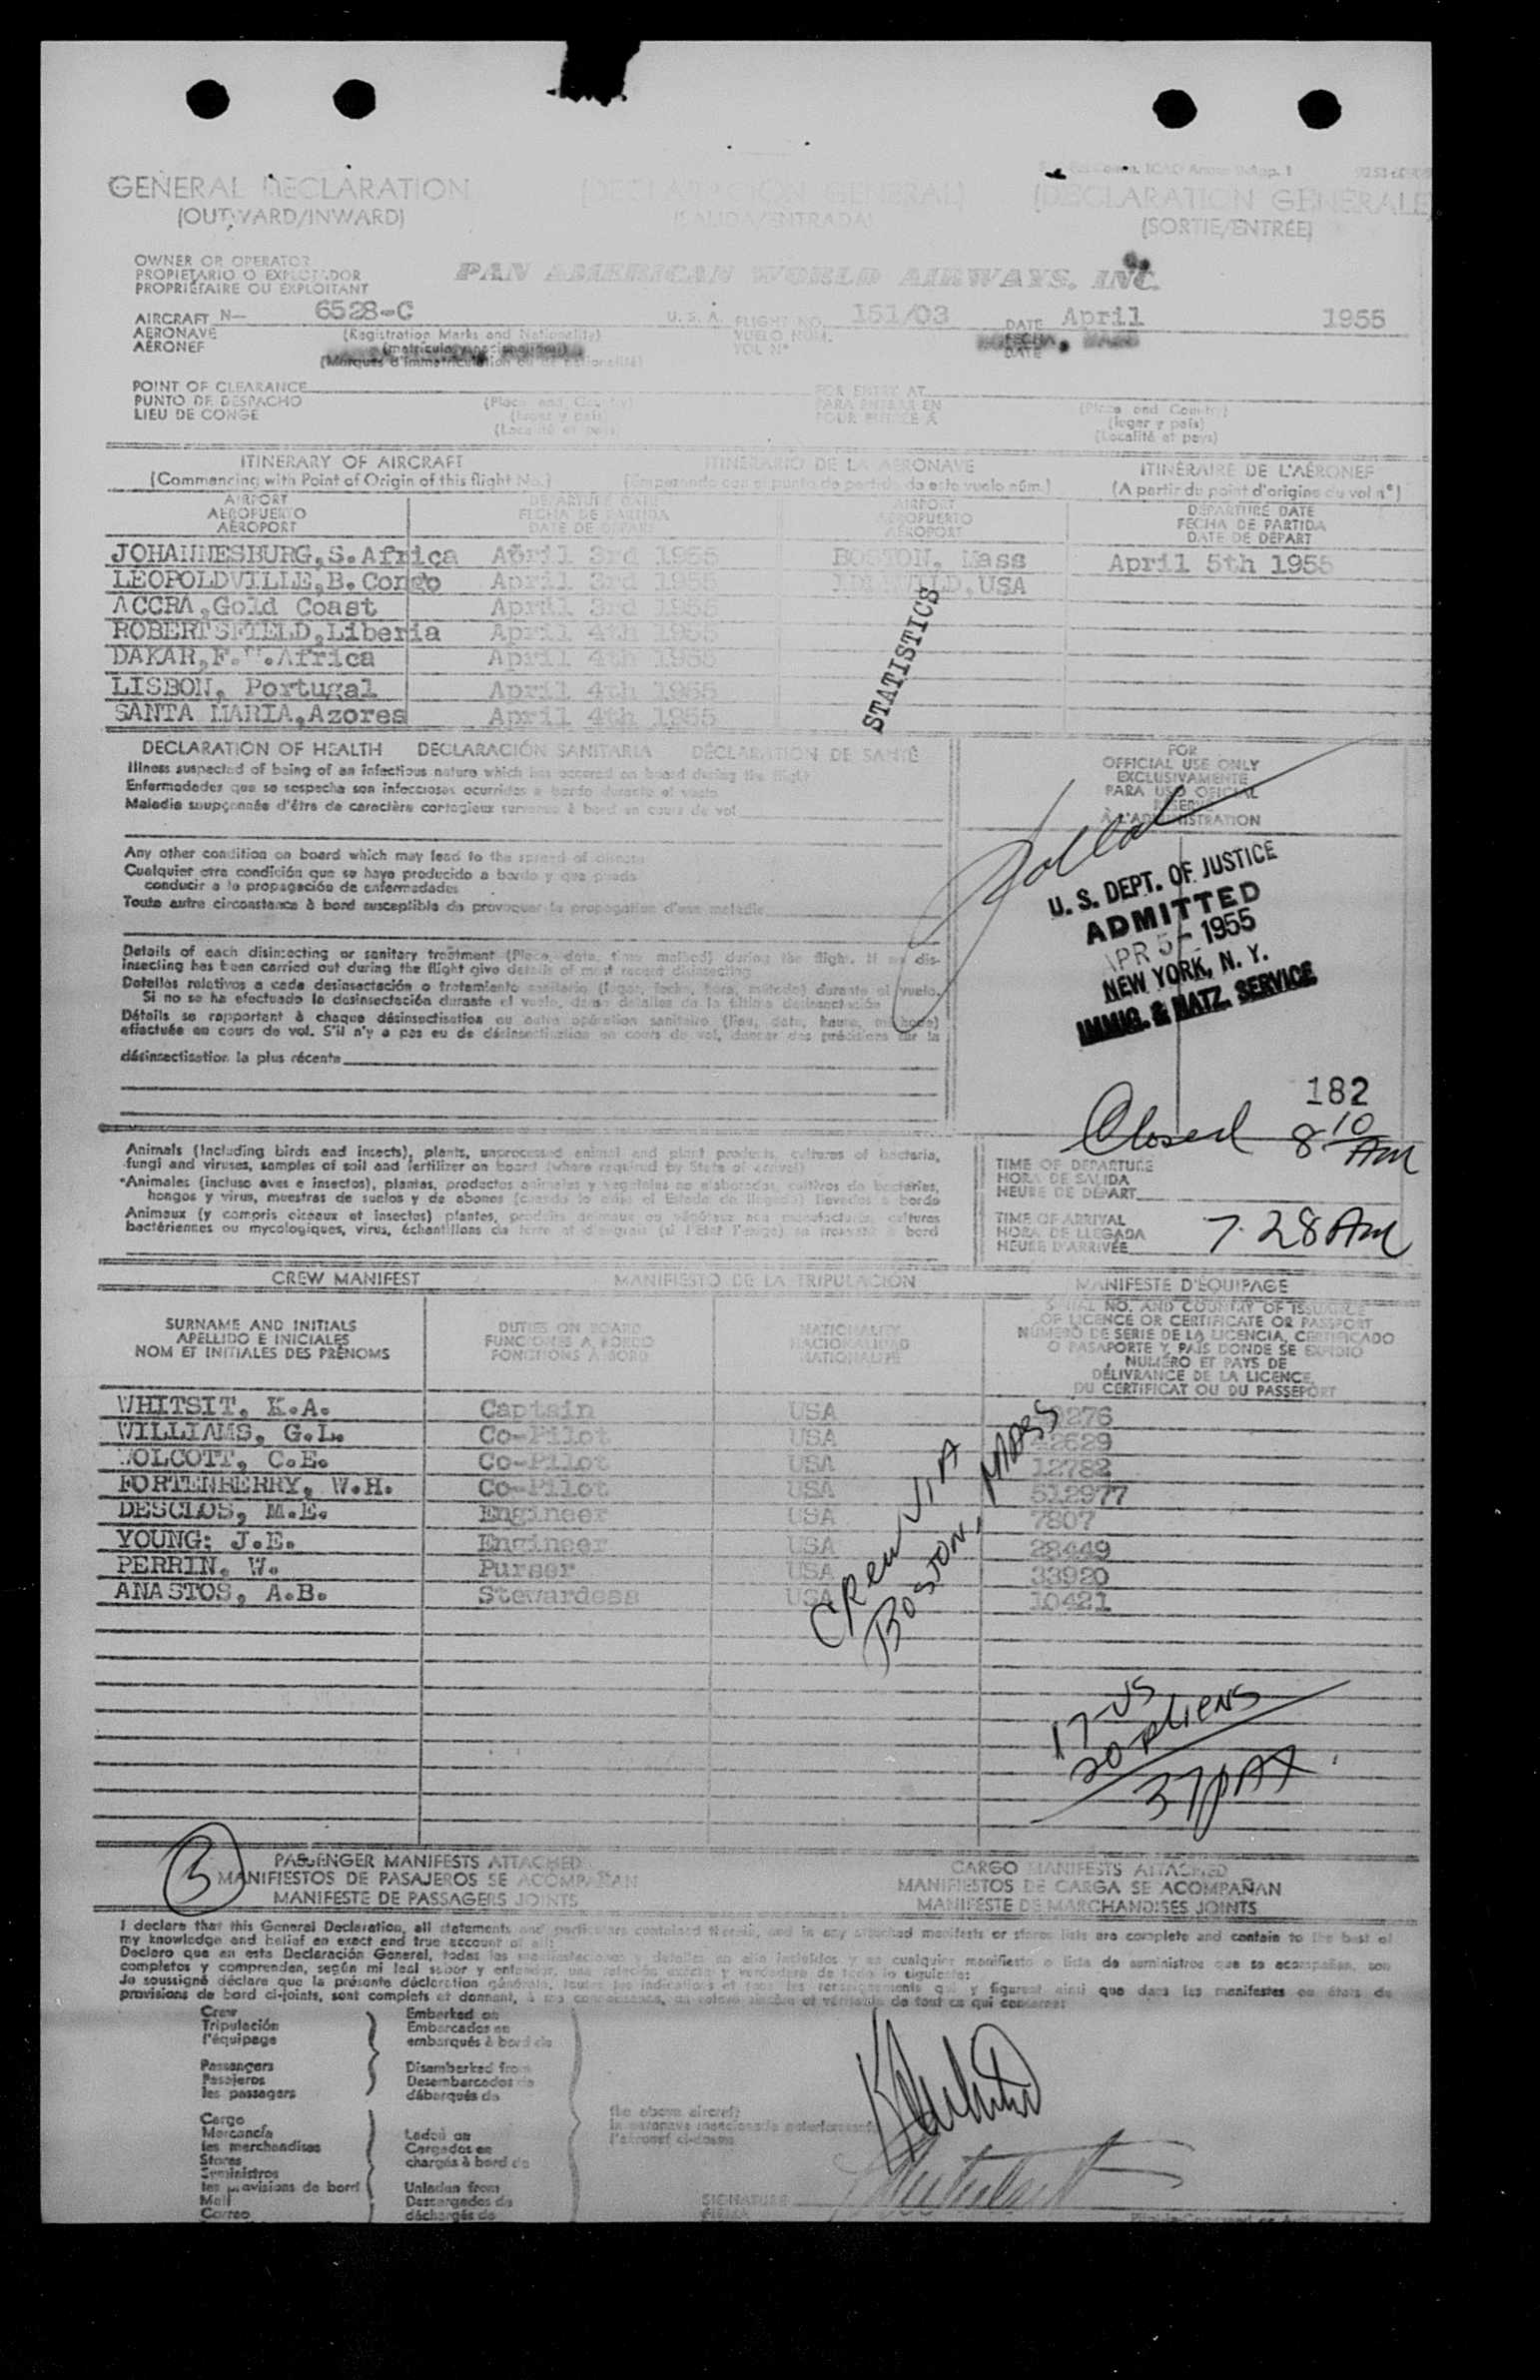 GENERAL DECLARATION (DECLARACION GENERAL) (DECLARATION GENERALE)
(OUTWARD/INWARD) (SALIDA/ENTRADA) (SORTIE/ENTRÉE)
OWNER OR OPERATOR
PROPIETARIO O EXPLOTADOR
PROPRIÉTAIRE OU EXPLOITANT
PAN AMERICAN WORLD AIRWAYS, INC.
AIRCRAFT N— 6528-C U. S. A. FLIGHT NO. 151/03 DATE April 1955
AERONAVE (Registration Marks and Nationality) VUELO NUM.
AÉRONEF VOL Nº DATE
POINT OF CLEARANCE FOR ENTRY AT
PUNTO DE DESPACHO (Place and Country) PARA ENTRAR EN (Place and Country)
LIEU DE CONGÉ (lugar y país) POUR ENTRÉE À (lugar y país)
(Localité et pays) (Localité et pays)
ITINERARY OF AIRCRAFT ITINERARIO DE LA AERONAVE ITINÉRAIRE DE L'AÉRONEF
(Commencing with Point of Origin of this flight No.) (Empezando con el punto de partida de este vuelo núm.) (A partir du point d'origine du vol nº)
AIRPORT DEPARTURE DATE AIRPORT DEPARTURE DATE
AEROPUERTO FECHA DE PARTIDA AEROPUERTO FECHA DE PARTIDA
AÉROPORT DATE DE DÉPART AÉROPORT DATE DE DÉPART
JOHANNESBURG,S.Africa April 3rd 1955 BOSTON, Mass April 5th 1955
LEOPOLDVILLE,B.Congo April 3rd 1955 IDLEWILD,USA
ACCRA,Gold Coast April 3rd 1955
ROBERTSFIELD,Liberia April 4th 1955
DAKAR,F.W.Africa April 4th 1955
LISBON, Portugal April 4th 1955
SANTA MARIA,Azores April 4th 1955
STATISTICS
DECLARATION OF HEALTH DECLARACIÓN SANITARIA DÉCLARATION DE SANTÉ
Illness suspected of being of an infectious nature which has occurred on board during the flight
Enfermedades que se sospecha son infecciosas ocurridas a bordo durante el vuelo
Maladie soupçonnée d'être de caractère contagieux survenue à bord en cours de vol
FOR
OFFICIAL USE ONLY
EXCLUSIVAMENTE
PARA USO OFICIAL
RÉSERVÉ
À L'ADMINISTRATION
Any other condition on board which may lead to the spread of disease
Cualquier otra condición que se haya producido a bordo y que pueda
conducir a la propagación de enfermedades
Toute autre circonstance à bord susceptible de provoquer la propagation d'une maladie
U. S. DEPT. OF JUSTICE
ADMITTED
APR 5 - 1955
NEW YORK, N. Y.
IMMIG. & NATZ. SERVICE
Details of each disinsecting or sanitary treatment (Place, date, time, method) during the flight. If no dis-
insecting has been carried out during the flight give details of most recent disinsecting
Detalles relativos a cada desinsectación o tratamiento sanitario (lugar, fecha, hora, método) durante el vuelo.
Si no se ha efectuado la desinsectación durante el vuelo, dense detalles de la última desinsectación
Détails se rapportant à chaque désinsectisation ou autre opération sanitaire (lieu, date, heure, méthode)
effectuée en cours de vol. S'il n'y a pas eu de désinsectisation en cours de vol, donner des précisions sur la
désinsectisation la plus récente
182
Closed 8 10 AM
Animals (Including birds and insects), plants, unprocessed animal and plant products, cultures of bacteria,
fungi and viruses, samples of soil and fertilizer on board (where required by State of arrival)
Animales (incluso aves e insectos), plantas, productos animales y vegetales no elaborados, cultivos de bacterias,
hongos y virus, muestras de suelos y de abonos (cuando lo exija el Estado de llegada) llevados a bordo
Animaux (y compris oiseaux et insectes) plantes, produits animaux ou végétaux non manufacturés, cultures
bactériennes ou mycologiques, virus, échantillons de terre et d'engrais (si l'État l'exige) se trouvant à bord
TIME OF DEPARTURE
HORA DE SALIDA
HEURE DE DÉPART
TIME OF ARRIVAL
HORA DE LLEGADA
HEURE D'ARRIVÉE
7.28 AM
CREW MANIFEST MANIFIESTO DE LA TRIPULACIÓN MANIFESTE D'ÉQUIPAGE
SURNAME AND INITIALS
APELLIDO E INICIALES
NOM ET INITIALES DES PRÉNOMS
DUTIES ON BOARD
FUNCIONES A BORDO
FONCTIONS À BORD
NATIONALITY
NACIONALIDAD
NATIONALITÉ
SERIAL NO. AND COUNTRY OF ISSUANCE
OF LICENCE OR CERTIFICATE OR PASSPORT
NÚMERO DE SERIE DE LA LICENCIA, CERTIFICADO
O PASAPORTE Y PAÍS DONDE SE EXPIDIÓ
NUMÉRO ET PAYS DE
DÉLIVRANCE DE LA LICENCE,
DU CERTIFICAT OU DU PASSEPORT
WHITSIT, K.A. Captain USA
WILLIAMS, G.L. Co-Pilot USA
WOLCOTT, C.E. Co-Pilot USA 12782
FORTENBERRY, W.H. Co-Pilot USA 512977
DESCLOS, M.E. Engineer USA 7807
YOUNG: J.E. Engineer USA 28449
PERRIN, W. Purser USA 33920
ANASTOS, A.B. Stewardess USA 10421
CREW VIA
BOSTON, MASS
17-US
20 ALIENS
37 PAX
3
PASSENGER MANIFESTS ATTACHED CARGO MANIFESTS ATTACHED
MANIFIESTOS DE PASAJEROS SE ACOMPAÑAN MANIFIESTOS DE CARGA SE ACOMPAÑAN
MANIFESTE DE PASSAGERS JOINTS MANIFESTE DE MARCHANDISES JOINTS
I declare that this General Declaration, all statements and particulars contained therein, and in any attached manifests or stores lists are complete and contain to the best of
my knowledge and belief an exact and true account of all:
Declaro que en esta Declaración General, todas las manifestaciones y detalles en ella incluídos y en cualquier manifiesto o lista de suministros que se acompañan, son
completos y comprenden, según mi leal saber y entender, una relación exacta y verdadera de todo lo siguiente:
Je soussigné déclare que la présente déclaration générale, toutes les indications et tous les renseignements qui y figurent ainsi que dans les manifestes ou états de
provisions de bord ci-joints, sont complets et donnent, à ma connaissance, un relevé sincère et véritable de tout ce qui concerne:
Crew Embarked on
Tripulación Embarcados en
l'équipage embarqués à bord de
Passengers Disembarked from
Pasajeros Desembarcados de
les passagers débarqués de
the above aircraft
la aeronave mencionada anteriormente
l'aéronef ci-dessus
Cargo
Mercancía Laden on
les marchandises Cargados en
Stores chargés à bord de
Suministros
les provisions de bord Unladen from
Mail Descargados de
Correo déchargés de
SIGNATURE
FIRMA